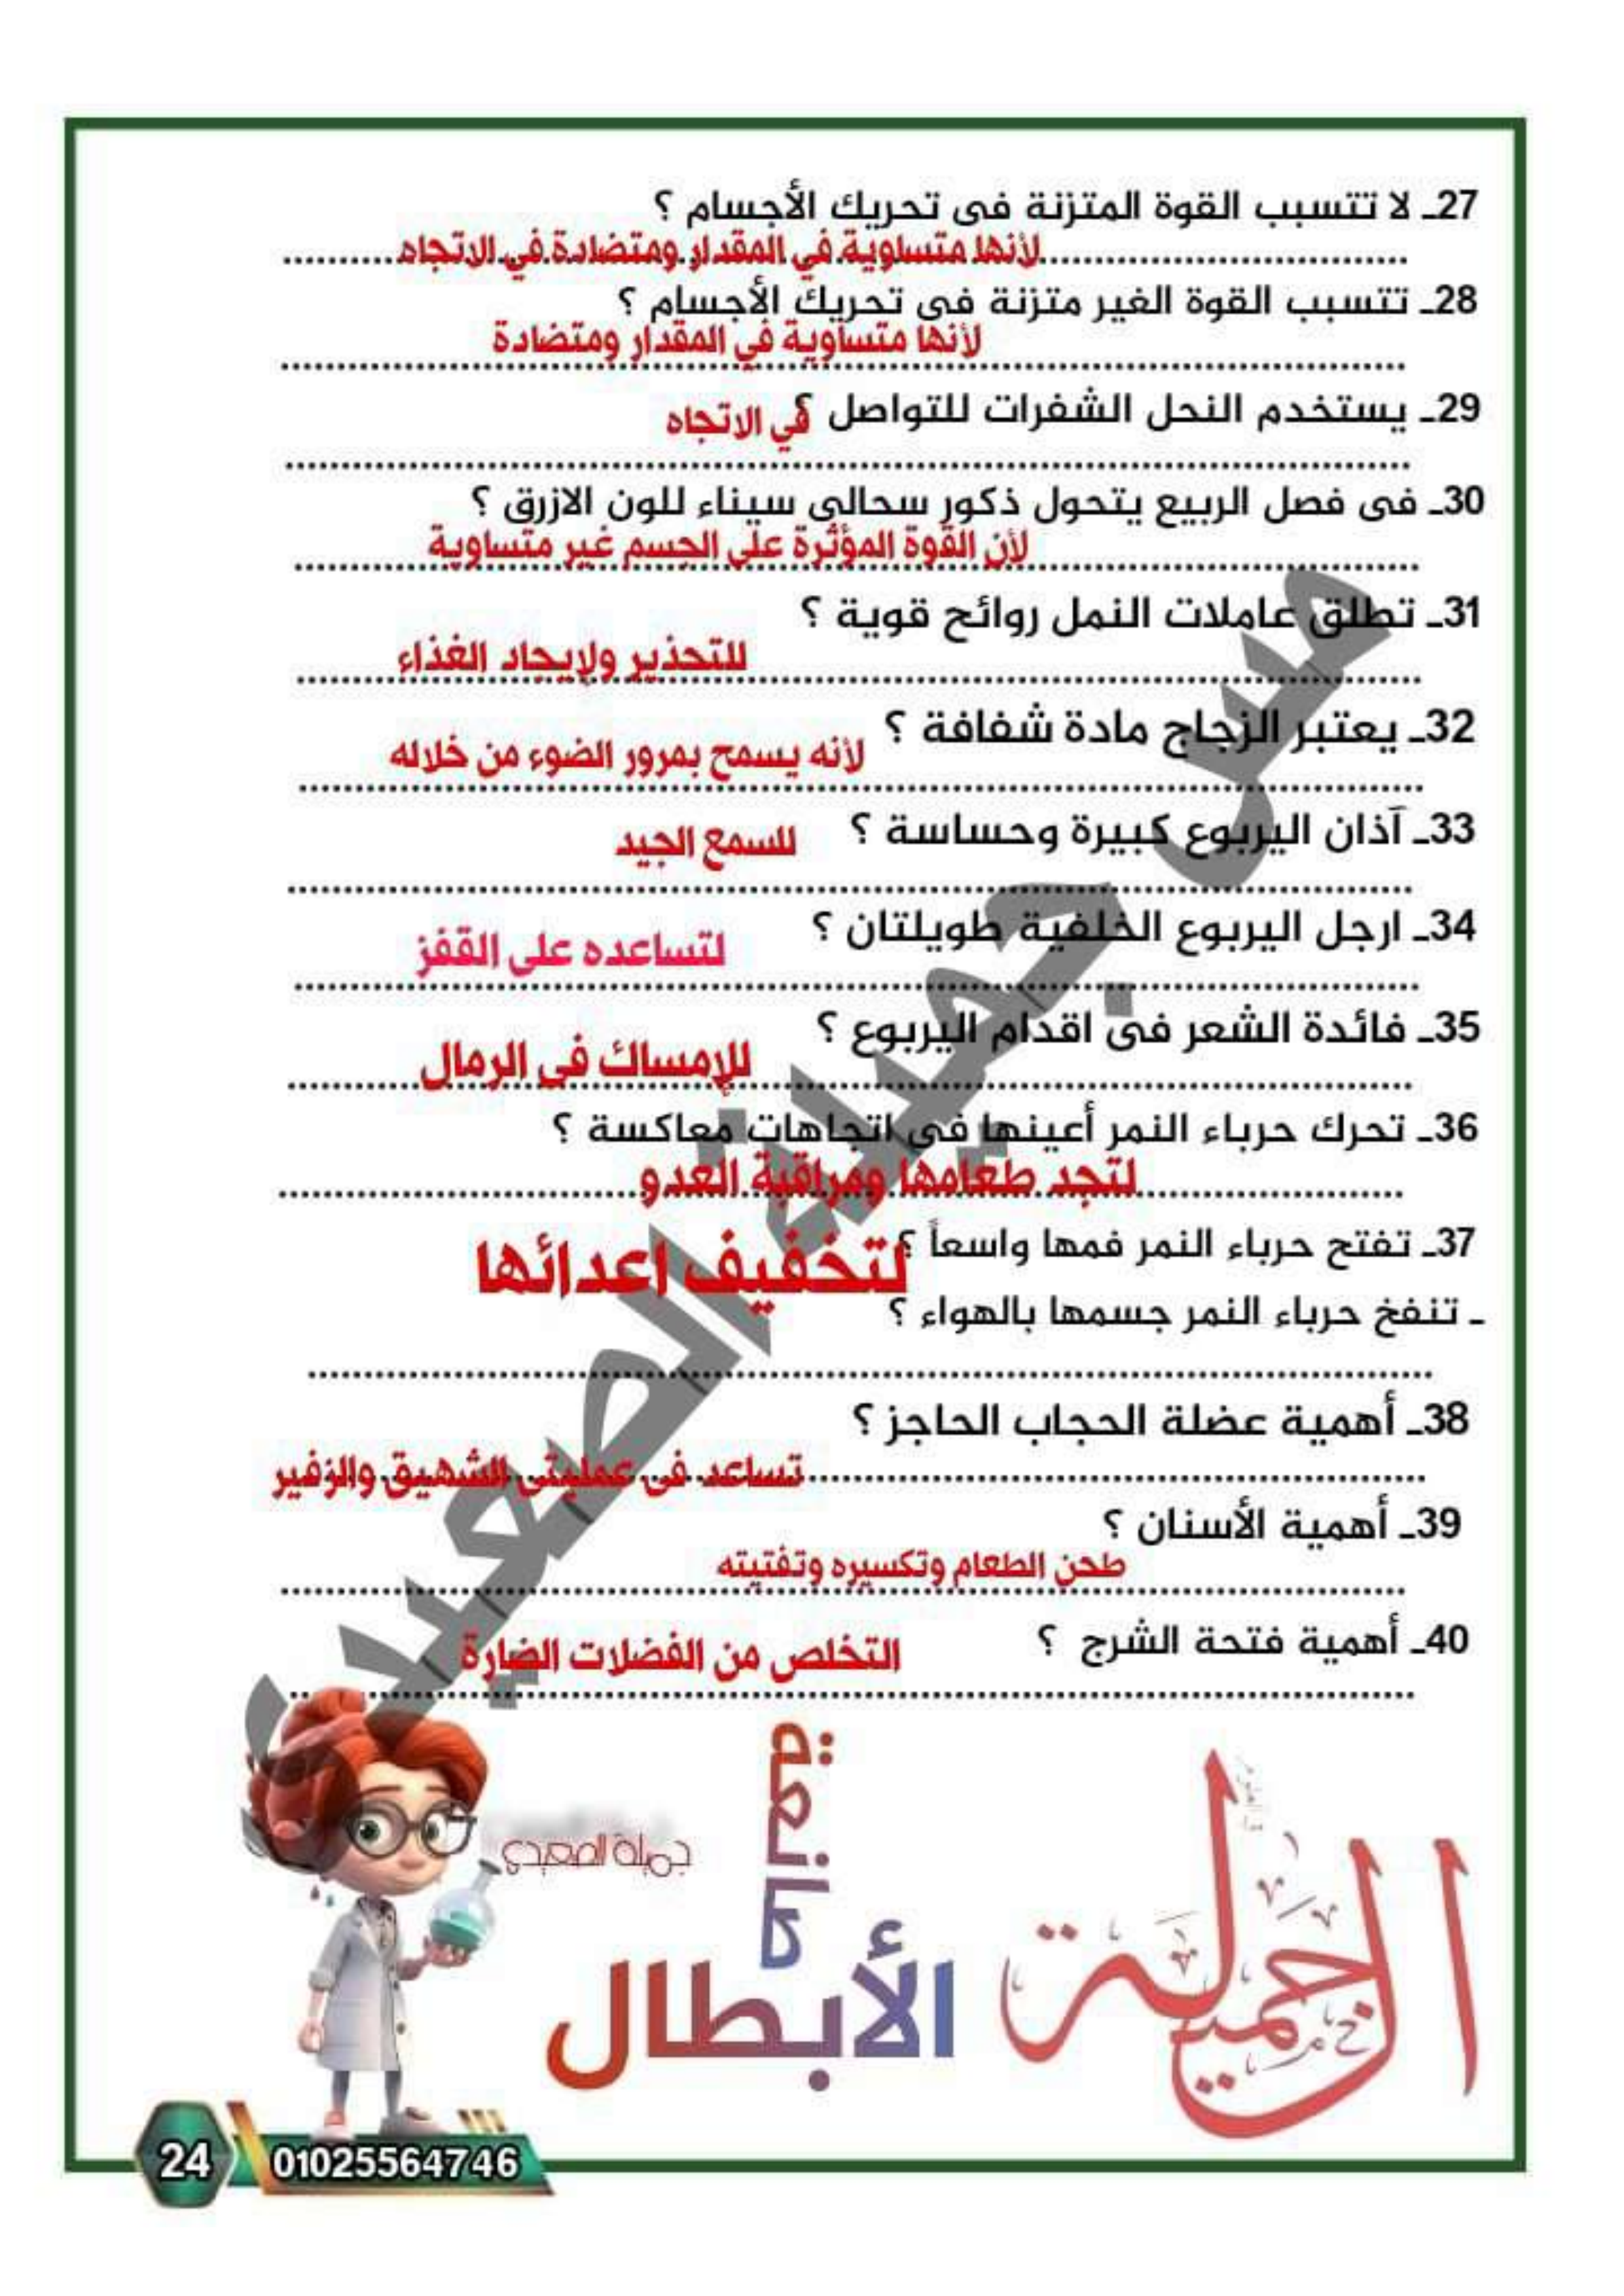 27ـ لا تتسبب القوة المتزنة فى تحريك الأجسام ؟
لأنها متساوية في المقدار ومتضادة في الاتجاه
28ـ تتسبب القوة الغير متزنة فى تحريك الأجسام ؟
لأنها متساوية في المقدار ومتضادة
29ـ يستخدم النحل الشفرات للتواصل ؟
في الاتجاه
30ـ فى فصل الربيع يتحول ذكور سحالى سيناء للون الازرق ؟
لأن القوة المؤثرة على الجسم غير متساوية
31ـ تطلق عاملات النمل روائح قوية ؟
للتحذير ولإيجاد الغذاء
32ـ يعتبر الزجاج مادة شفافة ؟
لأنه يسمح بمرور الضوء من خلاله
33ـ آذان اليربوع كبيرة وحساسة ؟
للسمع الجيد
34ـ ارجل اليربوع الخلفية طويلتان ؟
لتساعده على القفز
35ـ فائدة الشعر فى اقدام اليربوع ؟
للإمساك فى الرمال
36ـ تحرك حرباء النمر أعينها فى اتجاهات معاكسة ؟
لتجد طعامها ومراقبة العدو
37ـ تفتح حرباء النمر فمها واسعاً ؟
لتخفيف اعدائها
ـ تنفخ حرباء النمر جسمها بالهواء ؟
38ـ أهمية عضلة الحجاب الحاجز ؟
تساعد فى عمليتى الشهيق والزفير
39ـ أهمية الأسنان ؟
طحن الطعام وتكسيره وتفتيته
40ـ أهمية فتحة الشرج ؟
التخلص من الفضلات الضارة
مس جميلة الصعيدى
جميلة الصعيدي
الجميلة
صانعة
الأبطال
24
01025564746